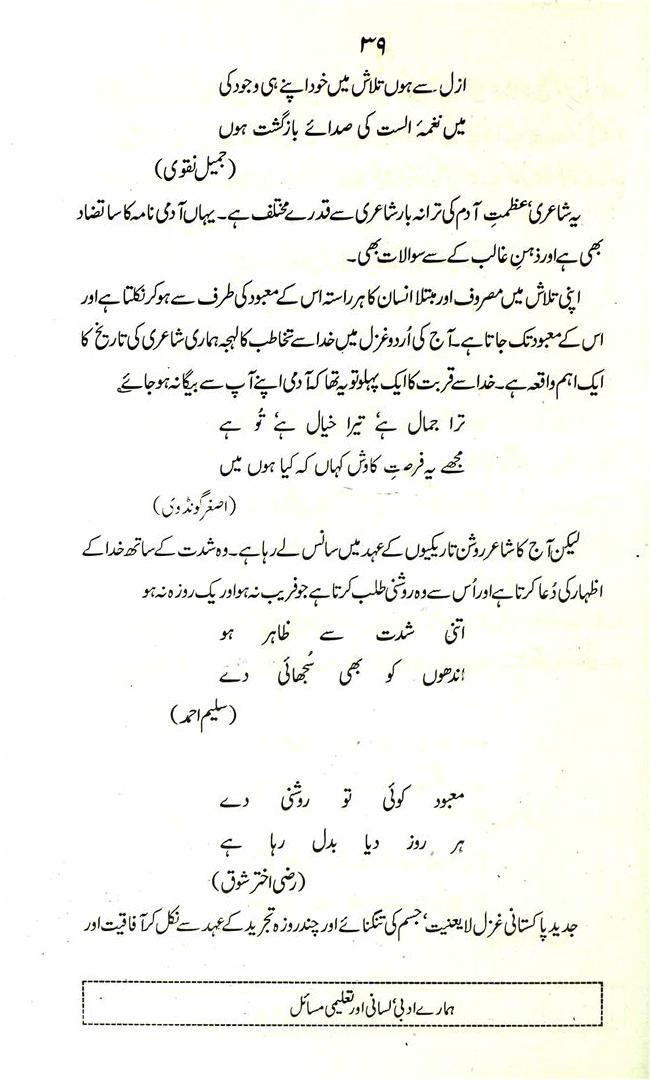 ۳۹
ازل سے ہوں تلاش میں خود اپنے ہی وجود کی
میں نغمۂ الست کی صدائے بازگشت ہوں
(جمیل نقوی)
یہ شاعری، عظمتِ آدم کی ترانہ بار شاعری سے قدرے مختلف ہے۔ یہاں آدمی نامہ کا سا تضاد
بھی ہے اور ذہنِ غالب کے سے سوالات بھی۔
اپنی تلاش میں مصروف اور مبتلا انسان کا ہر راستہ اس کے معبود کی طرف سے ہو کر نکلتا ہے اور
اس کے معبود تک جاتا ہے۔ آج کی اُردو غزل میں خدا سے تخاطب کا لہجہ ہماری شاعری کی تاریخ کا
ایک اہم واقعہ ہے۔ خدا سے قربت کا ایک پہلو تو یہ تھا کہ آدمی اپنے آپ سے بیگانہ ہو جائے۔
ترا جمال ہے، تیرا خیال ہے، تُو ہے
مجھے یہ فرصتِ کاوش کہاں کہ کیا ہوں میں
(اصغر گونڈوی)
لیکن آج کا شاعر روشن تاریکیوں کے عہد میں سانس لے رہا ہے۔ وہ شدت کے ساتھ خدا کے
اظہار کی دُعا کرتا ہے اور اُس سے وہ روشنی طلب کرتا ہے جو فریب نہ ہو اور یک روزہ نہ ہو
اتنی شدت سے ظاہر ہو
اندھوں کو بھی سُجھائی دے
(سلیم احمد)
معبود کوئی تو روشنی دے
ہر روز دیا بدل رہا ہے
(رضی اختر شوق)
جدید پاکستانی غزل لایعنیت، جسم کی تنگنائے اور چند روزہ تجرید کے عہد سے نکل کر آفاقیت اور
ہمارے ادبی، لسانی اور تعلیمی مسائل